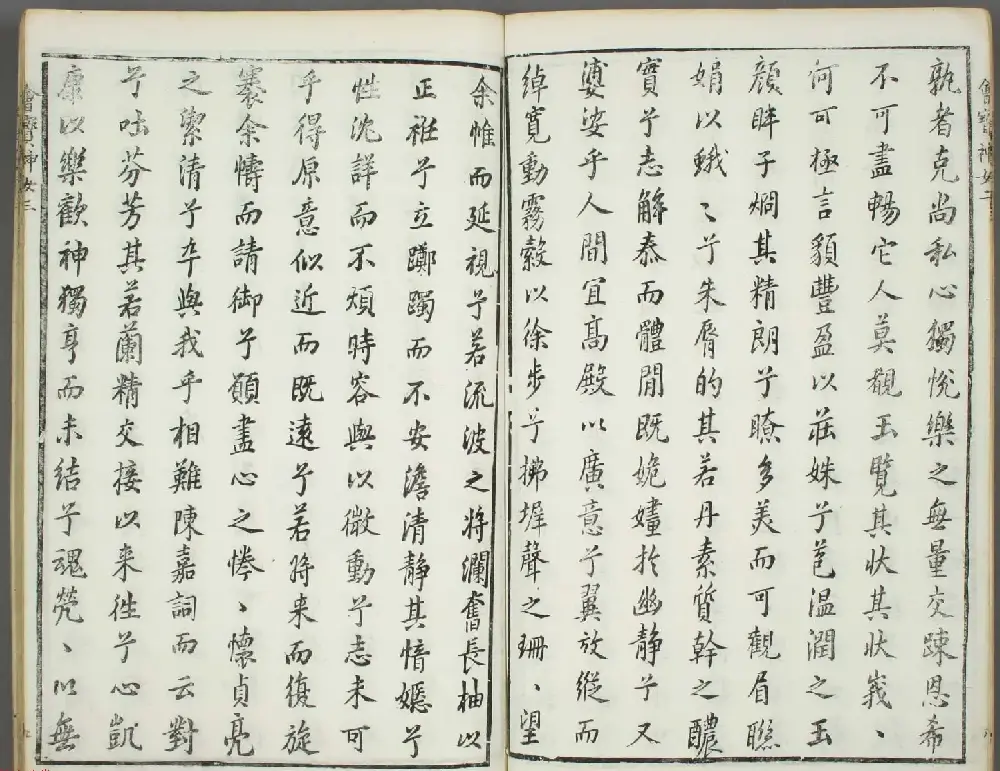 孰者克尚私心獨悅樂之無量交踈恩希
不可盡暢它人莫覩玉覽其狀其狀峩、
何可極言貌豐盈以莊姝兮苞温潤之玉
顔眸子烱其精朗兮瞭多美而可觀眉聯
娟以蛾〻兮朱脣的其若丹素質幹之醲
實兮志解泰而體閒既姽嫿扵幽静兮又
婆娑乎人間宜髙殿以廣意兮翼放縱而
綽寛動霧縠以徐步兮拂墀聲之珊、望
余帷而延視兮若流波之將瀾奮長袖以
正衽兮立躑躅而不安澹清静其愔嫕兮
性沈詳而不煩時容與以微動兮志未可
乎得原意似近而既遠兮若将来而復旋
褰余幬而請御兮願盡心之惓、懷貞亮
之潔清兮卒與我乎相難陳嘉詞而云對
兮吐芬芳其若蘭精交接以来往兮心凱
康以樂歡神獨亨而未結兮魂煢、以無